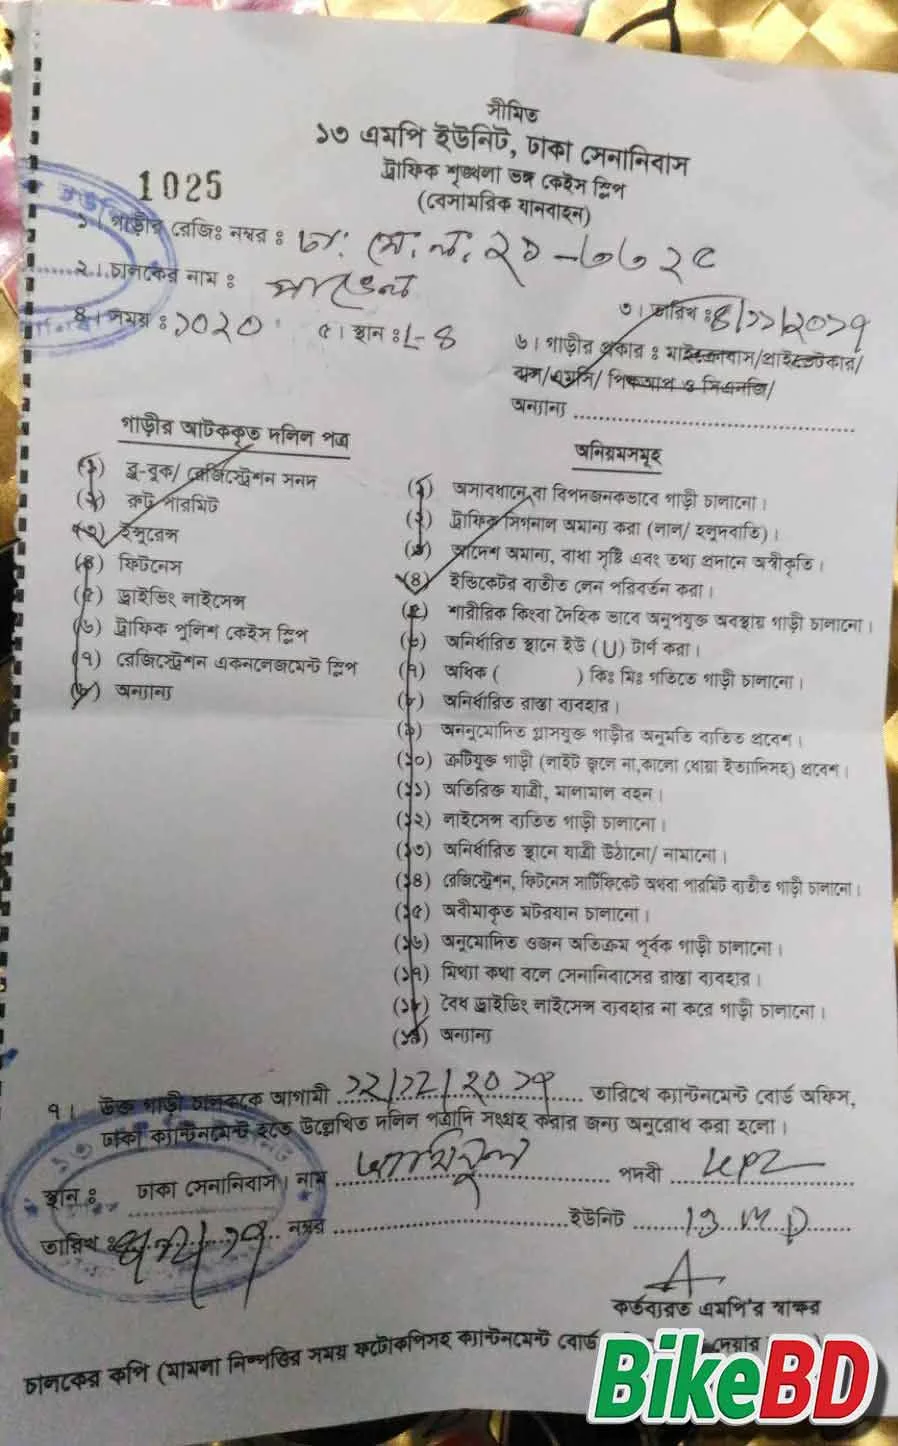 সীমিত
১৩ এমপি ইউনিট, ঢাকা সেনানিবাস
ট্রাফিক শৃঙ্খলা ভঙ্গ কেইস স্লিপ
(বেসামরিক যানবাহন)
1025
১। গাড়ীর রেজিঃ নম্বর :
২। চালকের নাম : পাভেল
৩। তারিখ :
৪। সময় : ১০২০ ৫। স্থান : L-8
৬। গাড়ীর প্রকার : মাইক্রোবাস/প্রাইভেটকার/
বাস/এমসি/ পিকআপ ও সিএনজি/
অন্যান্য
গাড়ীর আটককৃত দলিল পত্র
(১) ব্লু-বুক/ রেজিস্ট্রেশন সনদ
(২) রুট পারমিট
(৩) ইন্সুরেন্স
(৪) ফিটনেস
(৫) ড্রাইভিং লাইসেন্স
(৬) ট্রাফিক পুলিশ কেইস স্লিপ
(৭) রেজিস্ট্রেশন একনলেজমেন্ট স্লিপ
(৮) অন্যান্য
অনিয়মসমূহ
(১) অসাবধানে বা বিপদজনকভাবে গাড়ী চালানো।
(২) ট্রাফিক সিগনাল অমান্য করা (লাল/ হলুদবাতি)।
(৩) আদেশ অমান্য, বাধা সৃষ্টি এবং তথ্য প্রদানে অস্বীকৃতি।
(৪) ইন্ডিকেটর ব্যতীত লেন পরিবর্তন করা।
(৫) শারীরিক কিংবা দৈহিক ভাবে অনুপযুক্ত অবস্থায় গাড়ী চালানো।
(৬) অনির্ধারিত স্থানে ইউ (U) টার্ণ করা।
(৭) অধিক ( ) কিঃ মিঃ গতিতে গাড়ী চালানো।
(৮) অনির্ধারিত রাস্তা ব্যবহার।
(৯) অননুমোদিত গ্লাসযুক্ত গাড়ীর অনুমতি ব্যতিত প্রবেশ।
(১০) ত্রুটিযুক্ত গাড়ী (লাইট জ্বলে না,কালো ধোয়া ইত্যাদিসহ) প্রবেশ।
(১১) অতিরিক্ত যাত্রী, মালামাল বহন।
(১২) লাইসেন্স ব্যতিত গাড়ী চালানো।
(১৩) অনির্ধারিত স্থানে যাত্রী উঠানো/ নামানো।
(১৪) রেজিস্ট্রেশন, ফিটনেস সার্টিফিকেট অথবা পারমিট ব্যতীত গাড়ী চালানো।
(১৫) অবীমাকৃত মটরযান চালানো।
(১৬) অনুমোদিত ওজন অতিক্রম পূর্বক গাড়ী চালানো।
(১৭) মিথ্যা কথা বলে সেনানিবাসের রাস্তা ব্যবহার।
(১৮) বৈধ ড্রাইভিং লাইসেন্স ব্যবহার না করে গাড়ী চালানো।
(১৯) অন্যান্য
৭। উক্ত গাড়ী চালককে আগামী ১২/১২/২০১৭ তারিখে ক্যান্টনমেন্ট বোর্ড অফিস,
ঢাকা ক্যান্টনমেন্ট হতে উল্লেখিত দলিল পত্রাদি সংগ্রহ করার জন্য অনুরোধ করা হলো।
স্থান : ঢাকা সেনানিবাস। নাম পদবী
তারিখ : নম্বর ইউনিট
কর্তব্যরত এমপি'র স্বাক্ষর
চালকের কপি (মামলা নিষ্পত্তির সময় ফটোকপিসহ ক্যান্টনমেন্ট বোর্ড
BikeBD